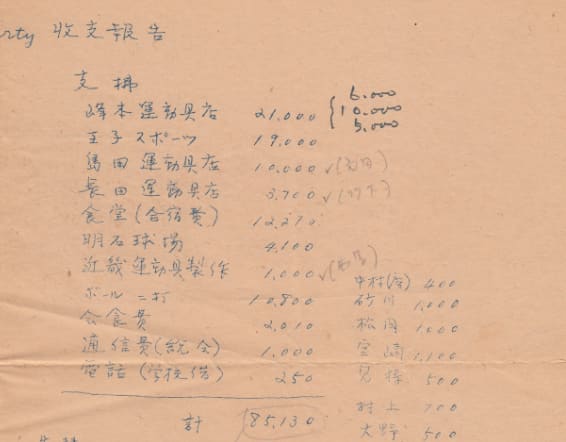 rty 收支報告
支拂
峰本運動具店 21,000 { 6.000
10.000
5.000
王子スポーツ 19,000
島田運動具店 10,000 ✓
長田運動具店 3,700 ✓
食堂(合宿費) 12,270
明石球場 4,100
近畿運動具製作 1,000 ✓
ボール二打 10,800
会食費 2,010
通信費(総会) 1,000
電話(学校借) 250
計 85,130
中村() 400
砂川 1,000
松岡 1,000
宮崎 1,100
兄 500
村上 700
大野 500